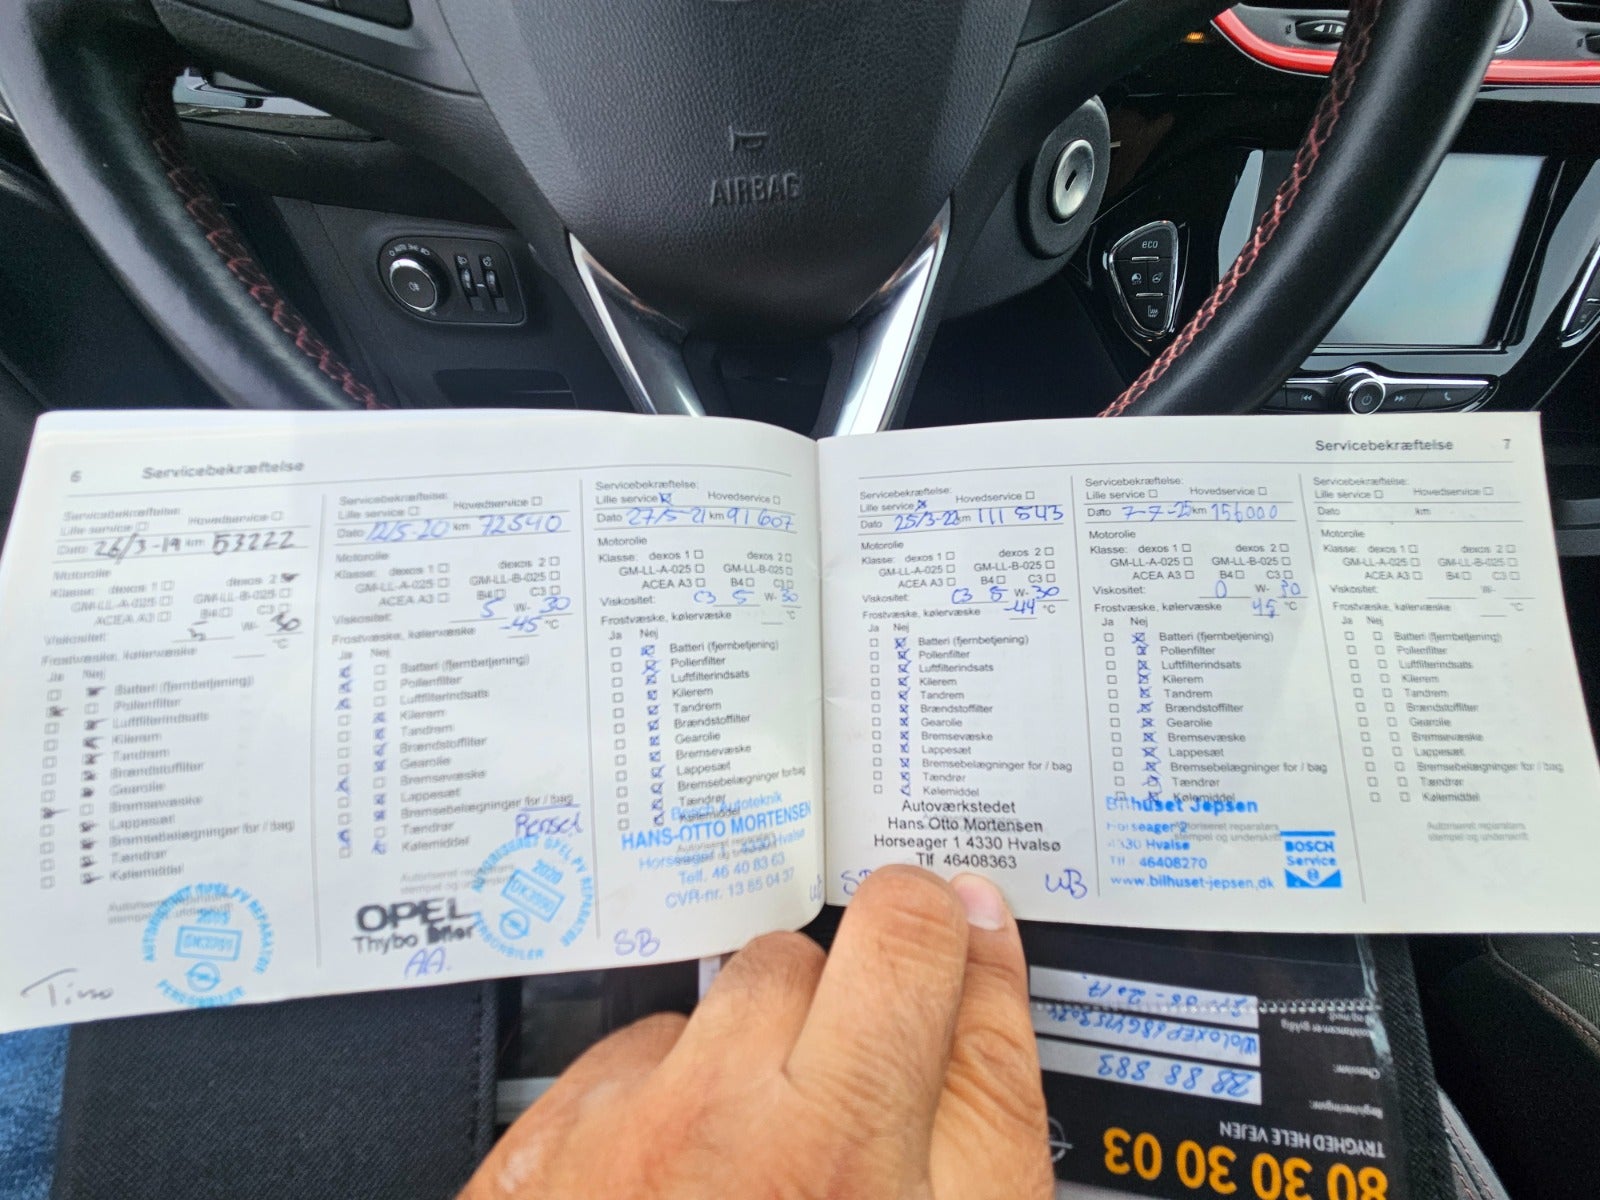 AIRBAG
AUTO
eco
6
Servicebekræftelse
Servicebekræftelse:
Lille service Hovedservice
Dato 26/3-19 km 53222
Motorolie
Klasse: dexos 1 dexos 2
GM-LL-A-025 GM-LL-B-025
ACEA A3 B4 C3
Viskositet: 5 W- 30
Frostvæske, kølervæske °C
Ja Nej
Batteri (fjernbetjening)
Pollenfilter
Luftfilterindsats
Kilerem
Tandrem
Brændstoffilter
Gearolie
Bremsevæske
Lappesæt
Bremsebelægninger for / bag
Tændrør
Kølemiddel
Autoriseret reparatørs
stempel og underskrift
AUTORISERET OPEL PV REPARATØR
PERSONBILER
Timo
Servicebekræftelse:
Lille service Hovedservice
Dato 12/5-20 km 72540
Motorolie
Klasse: dexos 1 dexos 2
GM-LL-A-025 GM-LL-B-025
ACEA A3 B4 C3
Viskositet: 5 W- 30
Frostvæske, kølervæske -45 °C
Ja Nej
Batteri (fjernbetjening)
Pollenfilter
Luftfilterindsats
Kilerem
Tandrem
Brændstoffilter
Gearolie
Bremsevæske
Lappesæt
Bremsebelægninger for / bag
Tændrør
Kølemiddel
Autoriseret reparatørs
stempel og underskrift
AUTORISERET OPEL PV REPARATØR
2020
PERSONBILER
OPEL
Thybo
AA.
Servicebekræftelse:
Lille service Hovedservice
Dato 27/5-21 km 91607
Motorolie
Klasse: dexos 1 dexos 2
GM-LL-A-025 GM-LL-B-025
ACEA A3 B4 C3
Viskositet: C3 5 W- 30
Frostvæske, kølervæske °C
Ja Nej
Batteri (fjernbetjening)
Pollenfilter
Luftfilterindsats
Kilerem
Tandrem
Brændstoffilter
Gearolie
Bremsevæske
Lappesæt
Bremsebelægninger for/bag
Tændrør
Kølemiddel
Bosch Autoteknik
HANS-OTTO MORTENSEN
Horseager 1 - 4330 Hvalsø
Telf. 46 40 83 63
CVR-nr. 13 85 04 37
SB
Servicebekræftelse 7
Servicebekræftelse:
Lille service Hovedservice
Dato 25/3-22 km 111 543
Motorolie
Klasse: dexos 1 dexos 2
GM-LL-A-025 GM-LL-B-025
ACEA A3 B4 C3
Viskositet: C3 5 W- 30
Frostvæske, kølervæske -44 °C
Ja Nej
Batteri (fjernbetjening)
Pollenfilter
Luftfilterindsats
Kilerem
Tandrem
Brændstoffilter
Gearolie
Bremsevæske
Lappesæt
Bremsebelægninger for / bag
Tændrør
Kølemiddel
Autoværkstedet
Hans Otto Mortensen
Horseager 1 4330 Hvalsø
Tlf 46408363
Servicebekræftelse:
Lille service Hovedservice
Dato 7-7-25 km 156000
Motorolie
Klasse: dexos 1 dexos 2
GM-LL-A-025 GM-LL-B-025
ACEA A3 B4 C3
Viskositet: 0 W- 30
Frostvæske, kølervæske 45 °C
Ja Nej
Batteri (fjernbetjening)
Pollenfilter
Luftfilterindsats
Kilerem
Tandrem
Brændstoffilter
Gearolie
Bremsevæske
Lappesæt
Bremsebelægninger for / bag
Tændrør
Kølemiddel
Bilhuset Jepsen
Autoriseret reparatørs
stempel og underskrift
Horseager 2
4330 Hvalsø
Tlf 46408270
www.bilhuset-jepsen.dk
BOSCH
Service
Servicebekræftelse:
Lille service Hovedservice
Dato km
Motorolie
Klasse: dexos 1 dexos 2
GM-LL-A-025 GM-LL-B-025
ACEA A3 B4 C3
Viskositet: W-
Frostvæske, kølervæske °C
Ja Nej
Batteri (fjernbetjening)
Pollenfilter
Luftfilterindsats
Kilerem
Tandrem
Brændstoffilter
Gearolie
Bremsevæske
Lappesæt
Bremsebelægninger for / bag
Tændrør
Kølemiddel
Autoriseret reparatørs
stempel og underskrift
80 30 30 03
TRYGHED HELE VEJEN